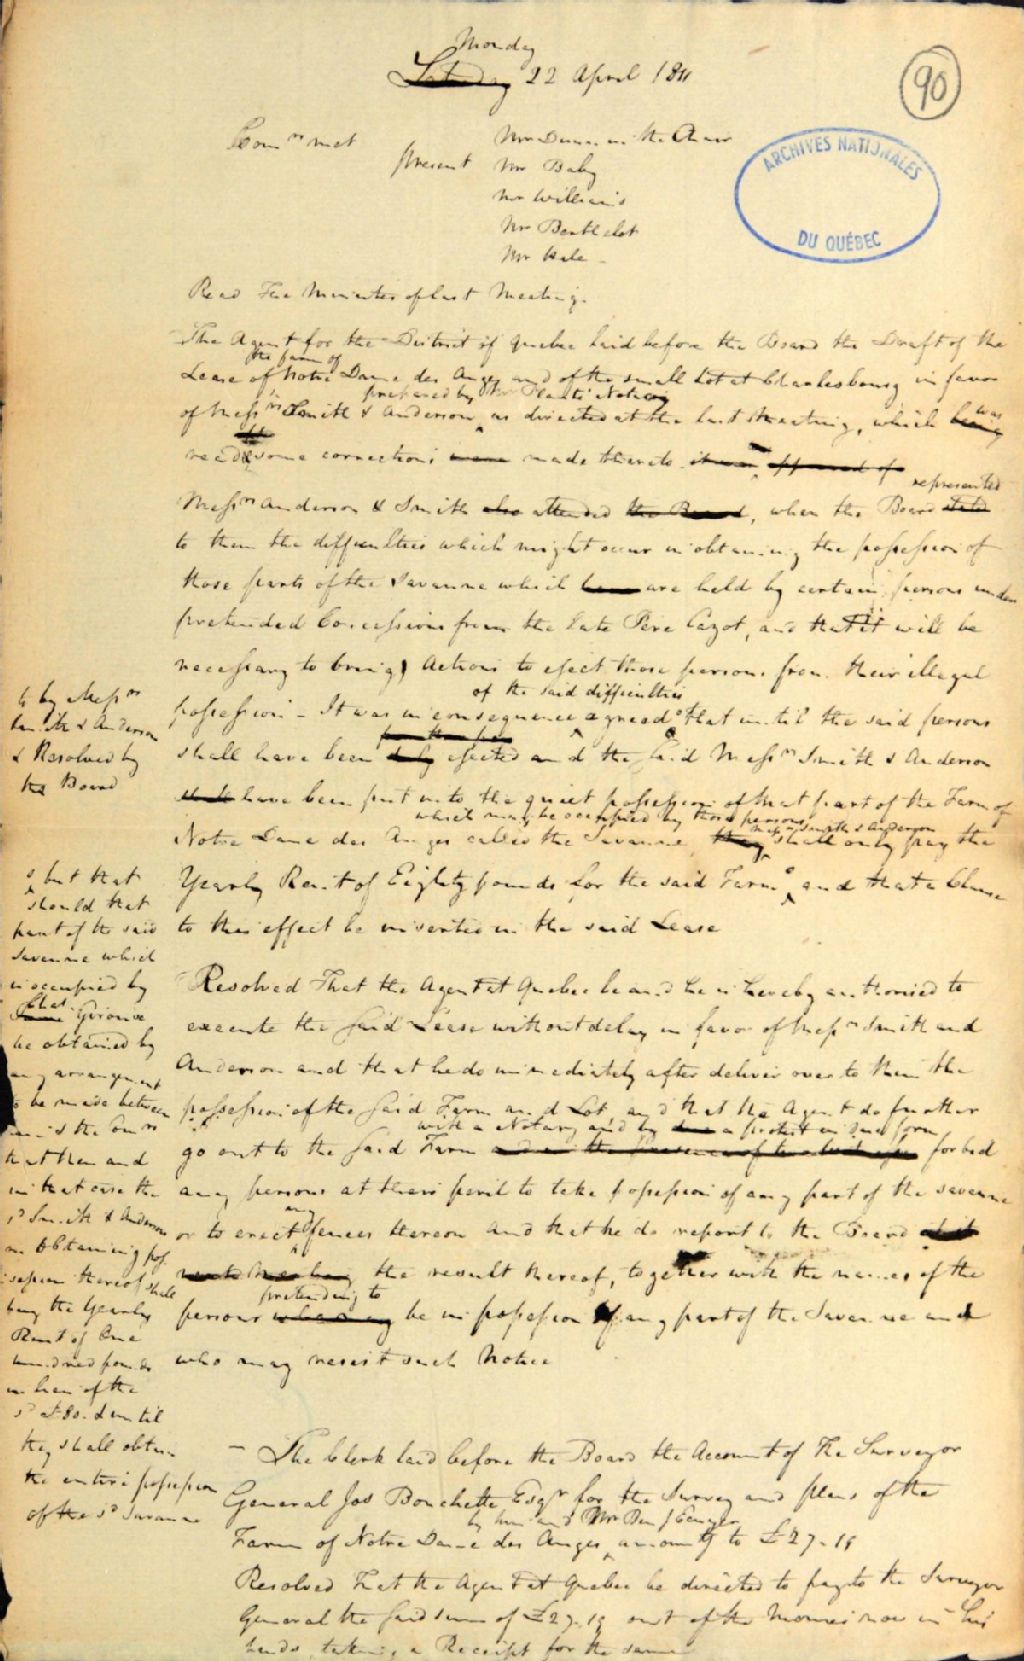 Monday
Saturday 22 April 1811
90
Comrs met
present
Mr Dunn in the Chair
Mr Baby
Mr Williams
Mr Berthelot
Mr Hale
ARCHIVES NATIONALES
DU QUÉBEC
Read The Minutes of last Meeting.
The Agent for the District of Quebec laid before the Board the Draft of the
the farm of
Lease of Notre Dame des Anges and of the small Lot at Charlesbourg in favor
prepared by Mr Planté Notary
of Messrs Smith & Anderson as directed at the last Meeting, which being was
read & some corrections were made thereto it was approved of
Messrs Anderson & Smith also attended the Board, when the Board stated represented
to them the difficulties which might occur in obtaining the possession of
those parts of the Savanne which are held by certain persons under
pretended Concessions from the late Pere Cazot, and that it will be
necessary to bring Actions to eject those persons from their illegal
of the said difficulties
possession - It was in consequence agreed that until the said persons
shall have been duly ejected and the said Messrs Smith & Anderson
shall have been put into the quiet possession of that part of the Farm of
which may be occupied by those persons
Messrs Smith & Anderson
Notre Dame des Anges called the Savanne they shall only pay the
Yearly Rent of Eighty pounds for the said Farm, and that a Clause
to this effect be inserted in the said Lease
to by Messrs
Smith & Anderson
& Resolved by
the Board
& but that
should that
part of the said
Savanne which
is occupied by
Chas
Gironce
be obtained by
any arrangement
to be made between
the Comrs
that then and
in that case the
sd Smith & Anderson
on Obtaining pos
session thereof shall
pay the Yearly
Rent of One
hundred pounds
in lieu of the
sd £80. & until
they shall obtain
the entire possession
of the sd Savanne
Resolved That the Agent at Quebec be and he is hereby authorised to
execute the said Lease without delay in favor of Messrs Smith and
Anderson and that he do immediately after deliver over to them the
possession of the said Farm and Lot, and that the Agent do further
with a Notary and by a protest in due form
go out to the said Farm and in the presence of two witnesses forbid
any persons at their peril to take possession of any part of the Savanne
any
or to erect fences thereon and that he do report to the Board at it
next Meeting the result thereof, together with the names of the
pretending to
persons who may be in possession of any part of the Savanne and
who may resist such Notice
- The Clerk laid before the Board the Account of The Surveyor
General Jos Bouchette Esqr for the Survey and plans of the
by him and Mr Benj Ecuyer
Farm of Notre Dame des Anges amountg to £27.15
Resolved That the Agent at Quebec be directed to pay to the Surveyor
General the said sum of £27.15 out of the Monies now in his
hands, taking a Receipt for the same